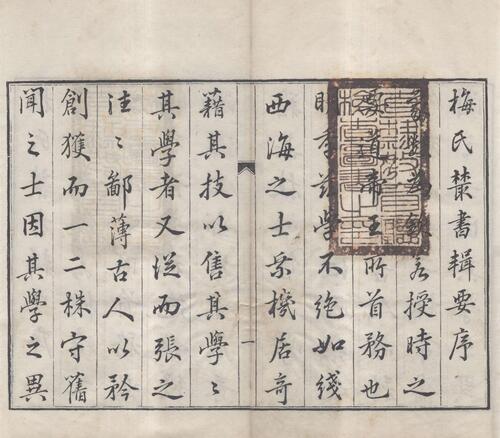 梅氏叢書輯要序
若授時之
帝王所首務也
明季茲學不絕如綫
西海之士乘機居奇
藉其技以售其學〻
其學者又從而張之
往〻鄙薄古人以矜
創獲而一二株守舊
一
聞之士因其學之異